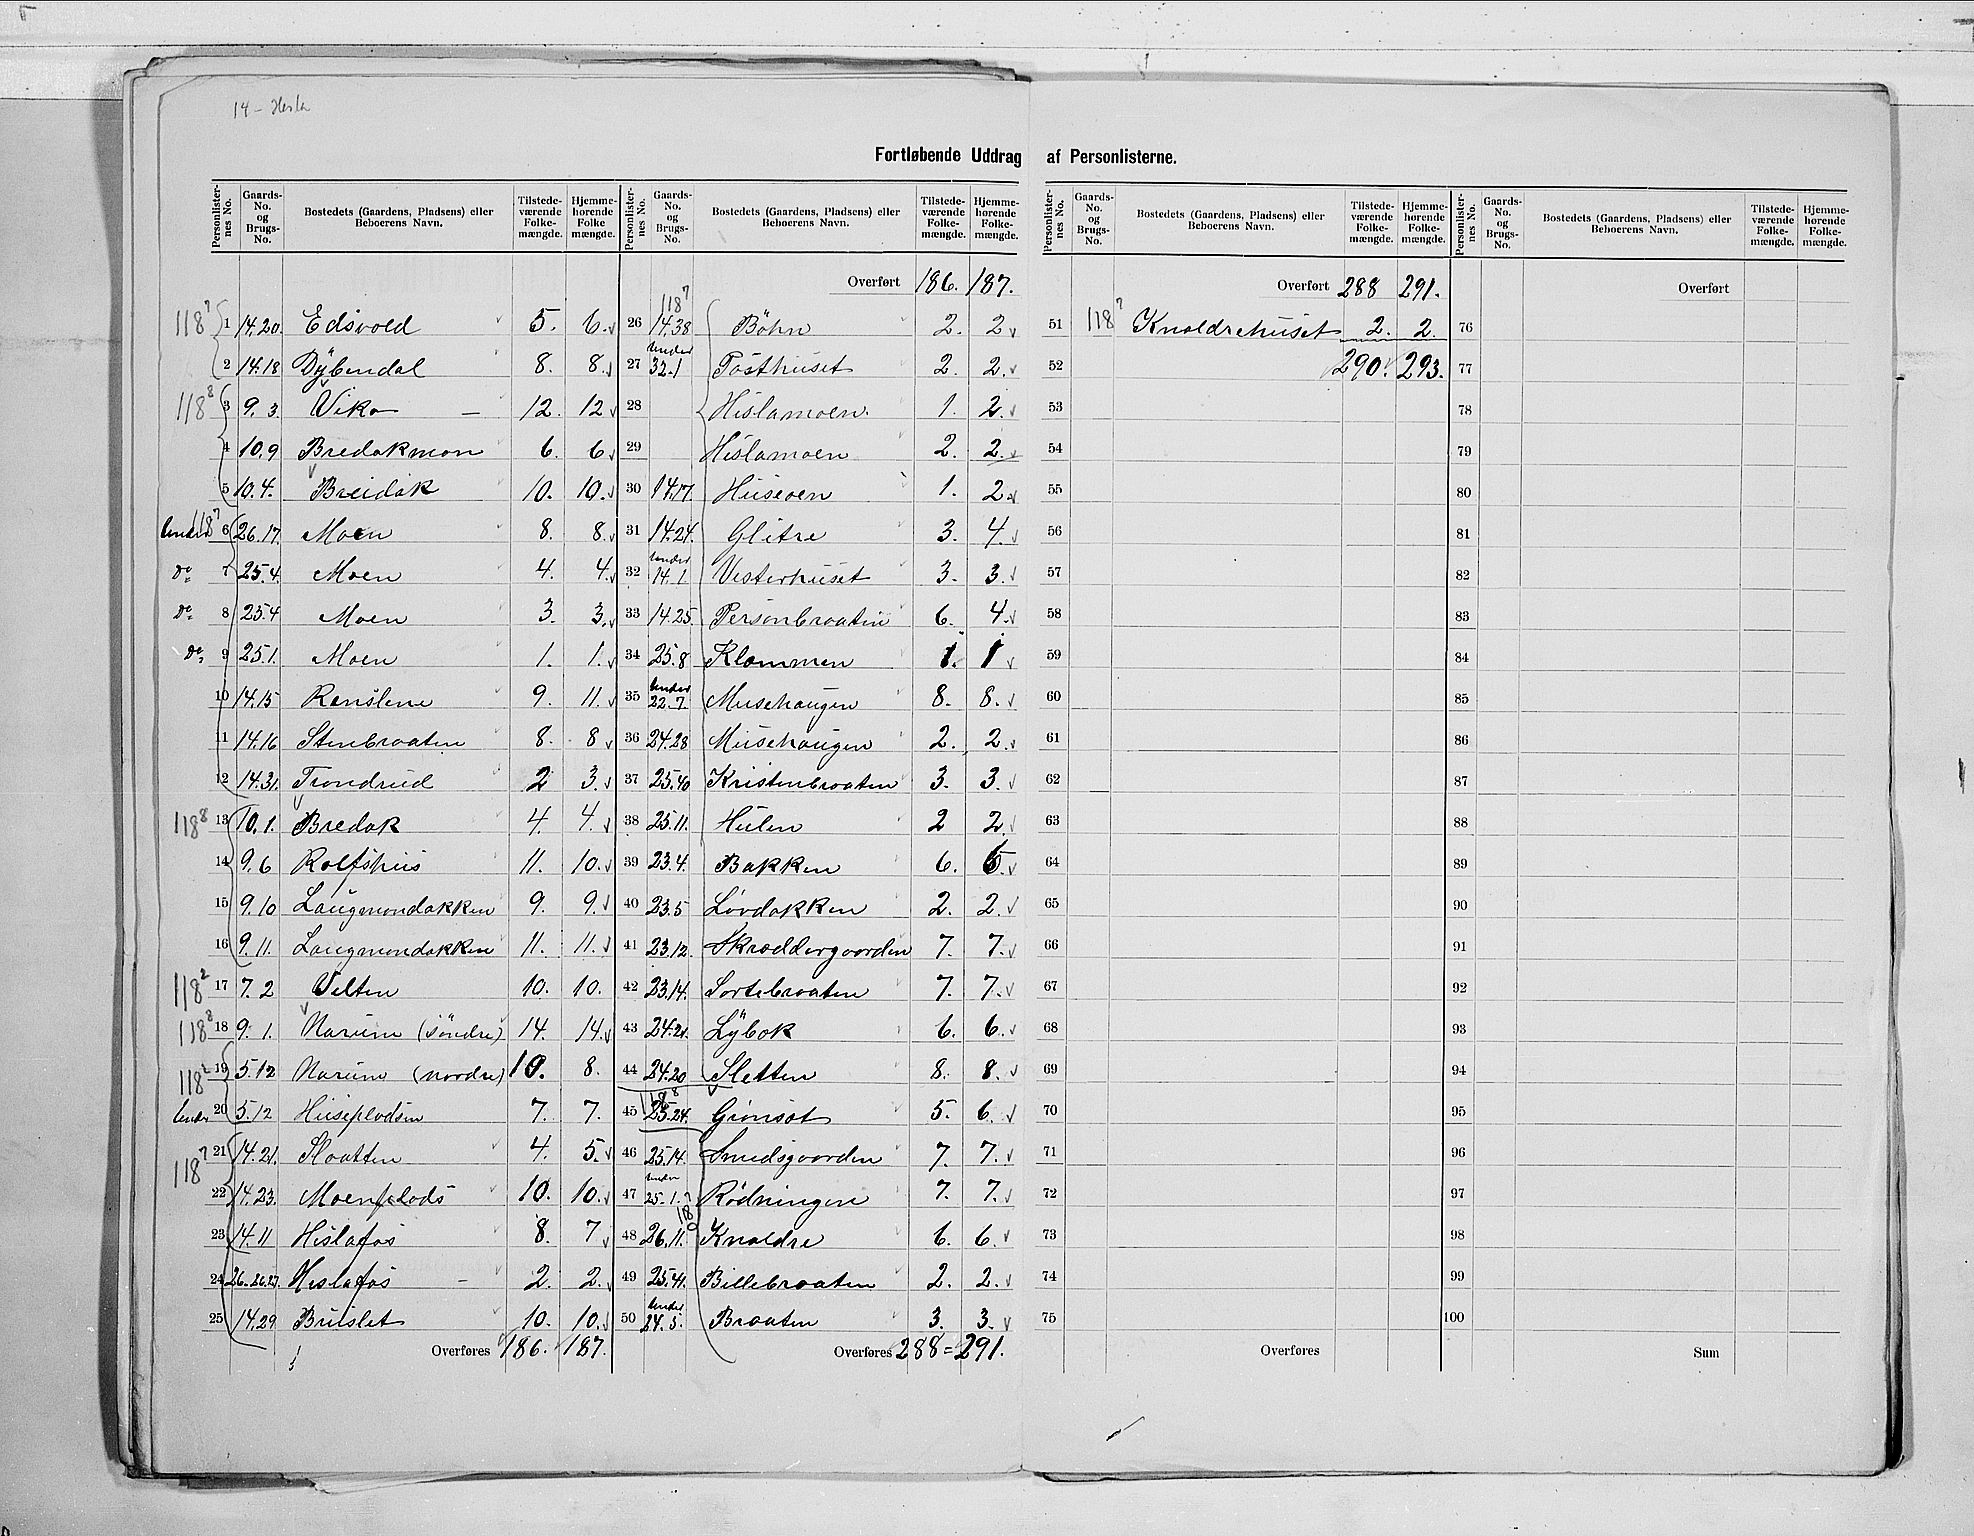 14 - Hesla
Fortløbende Uddrag af Personlisterne.
Personlisternes No. Gaards-No. og Brugs-No. Bostedets (Gaardens, Pladsens) eller Beboerens Navn. Tilstedeværende Folkemængde. Hjemmehørende Folkemængde.
Personlisternes No. Gaards-No. og Brugs-No. Bostedets (Gaardens, Pladsens) eller Beboerens Navn. Tilstedeværende Folkemængde. Hjemmehørende Folkemængde.
Personlisternes No. Gaards-No. og Brugs-No. Bostedets (Gaardens, Pladsens) eller Beboerens Navn. Tilstedeværende Folkemængde. Hjemmehørende Folkemængde.
Personlisternes No. Gaards-No. og Brugs-No. Bostedets (Gaardens, Pladsens) eller Beboerens Navn. Tilstedeværende Folkemængde. Hjemmehørende Folkemængde.
118⁷ 1 14.20. Edsvold 5. 6.
2 14.18 Dÿbendal 8. 8.
118⁸ 3 9. 3. Vika – 12. 12
4 10.9 Bredakmon 6. 6
5 10.4. Breidak 10. 10.
under 118⁷ 6 26.17. Moen 8. 8.
do 7 25.4. Moen 4. 4.
do 8 25.4 Moen 3. 3.
do 9 25.1. Moen 1. 1.
10 14.15 Renslene 9. 11.
11 14.16 Stenbraaten 8. 8
12 14.31. Trondrud 2 3.
118⁸ 13 10.1. Bredak 4. 4.
14 9.6 Rolfshus 11. 10.
15 9.10 Laugmondakken 9. 9.
16 9.11. Laugmondakken 11. 11.
118² 17 7.2 Velten 10. 10.
118⁸ 18 9. 1. Narum (söndre) 14. 14.
118² 19 5.12 Narum (nordre) 10. 8.
under 20 5.12 Husepladsen 7. 7.
118⁷ 21 14.21. Slaatten 4. 5.
22 14.23. Moenplads 10. 10.
23 14.11 Hislafos 8. 7
24 26.26.27. Hislafos – 2. 2.
25 14.29 Bruslet 10. 10.
Overføres 186. 187.
Overført 186. 187.
118⁷
26 14.38 Böhn 2. 2
27 under 32.1 Posthuset 2. 2.
28 Hislamoen. 1. 2.
29 Hislamoen 2. 2.
30 14.17. Huseoen 1. 2.
31 14.24. Glitre 3. 4.
32 under 14.1 Vesterhuset 3. 3.
33 14.25. Personbraaten 6. 4.
34 25.8 Klommen 1. 1
35 under 22.7. Musehaugen 8. 8.
36 24.28 Musehaugen 2. 2.
37 25.40 Kristenbraaten 3. 3.
38 25.11. Hulen 2 2.
39 23.4. Bakken 6. 6.
40 23.5 Lövdokken 2. 2.
41 23.12. Skræddergaarden 7. 7.
42 23.14. Sortebraaten 7. 7.
43 24.21. Lÿbok 6. 6.
44 24.20 Sletten 8. 8.
118⁸
45 25.24. Grönsöt 5. 6.
46 25.14. Smedsgaarden 7. 7.
47 under 25.1.? Rödningen 7. 7.
118⁹
48 26.11. Knaldre 6. 6.
49 25.41. Billebraaten 2. 2.
50 under 24.5. Braaten 3. 3.
Overføres 288 = 291.
Overført 288 291.
51 118⁷ Knaldrehuset 2. 2.
52 290. 293.
53
54
55
56
57
58
59
60
61
62
63
64
65
66
67
68
69
70
71
72
73
74
75
Overføres
Overført
76
77
78
79
80
81
82
83
84
85
86
87
88
89
90
91
92
93
94
95
96
97
98
99
100
Sum